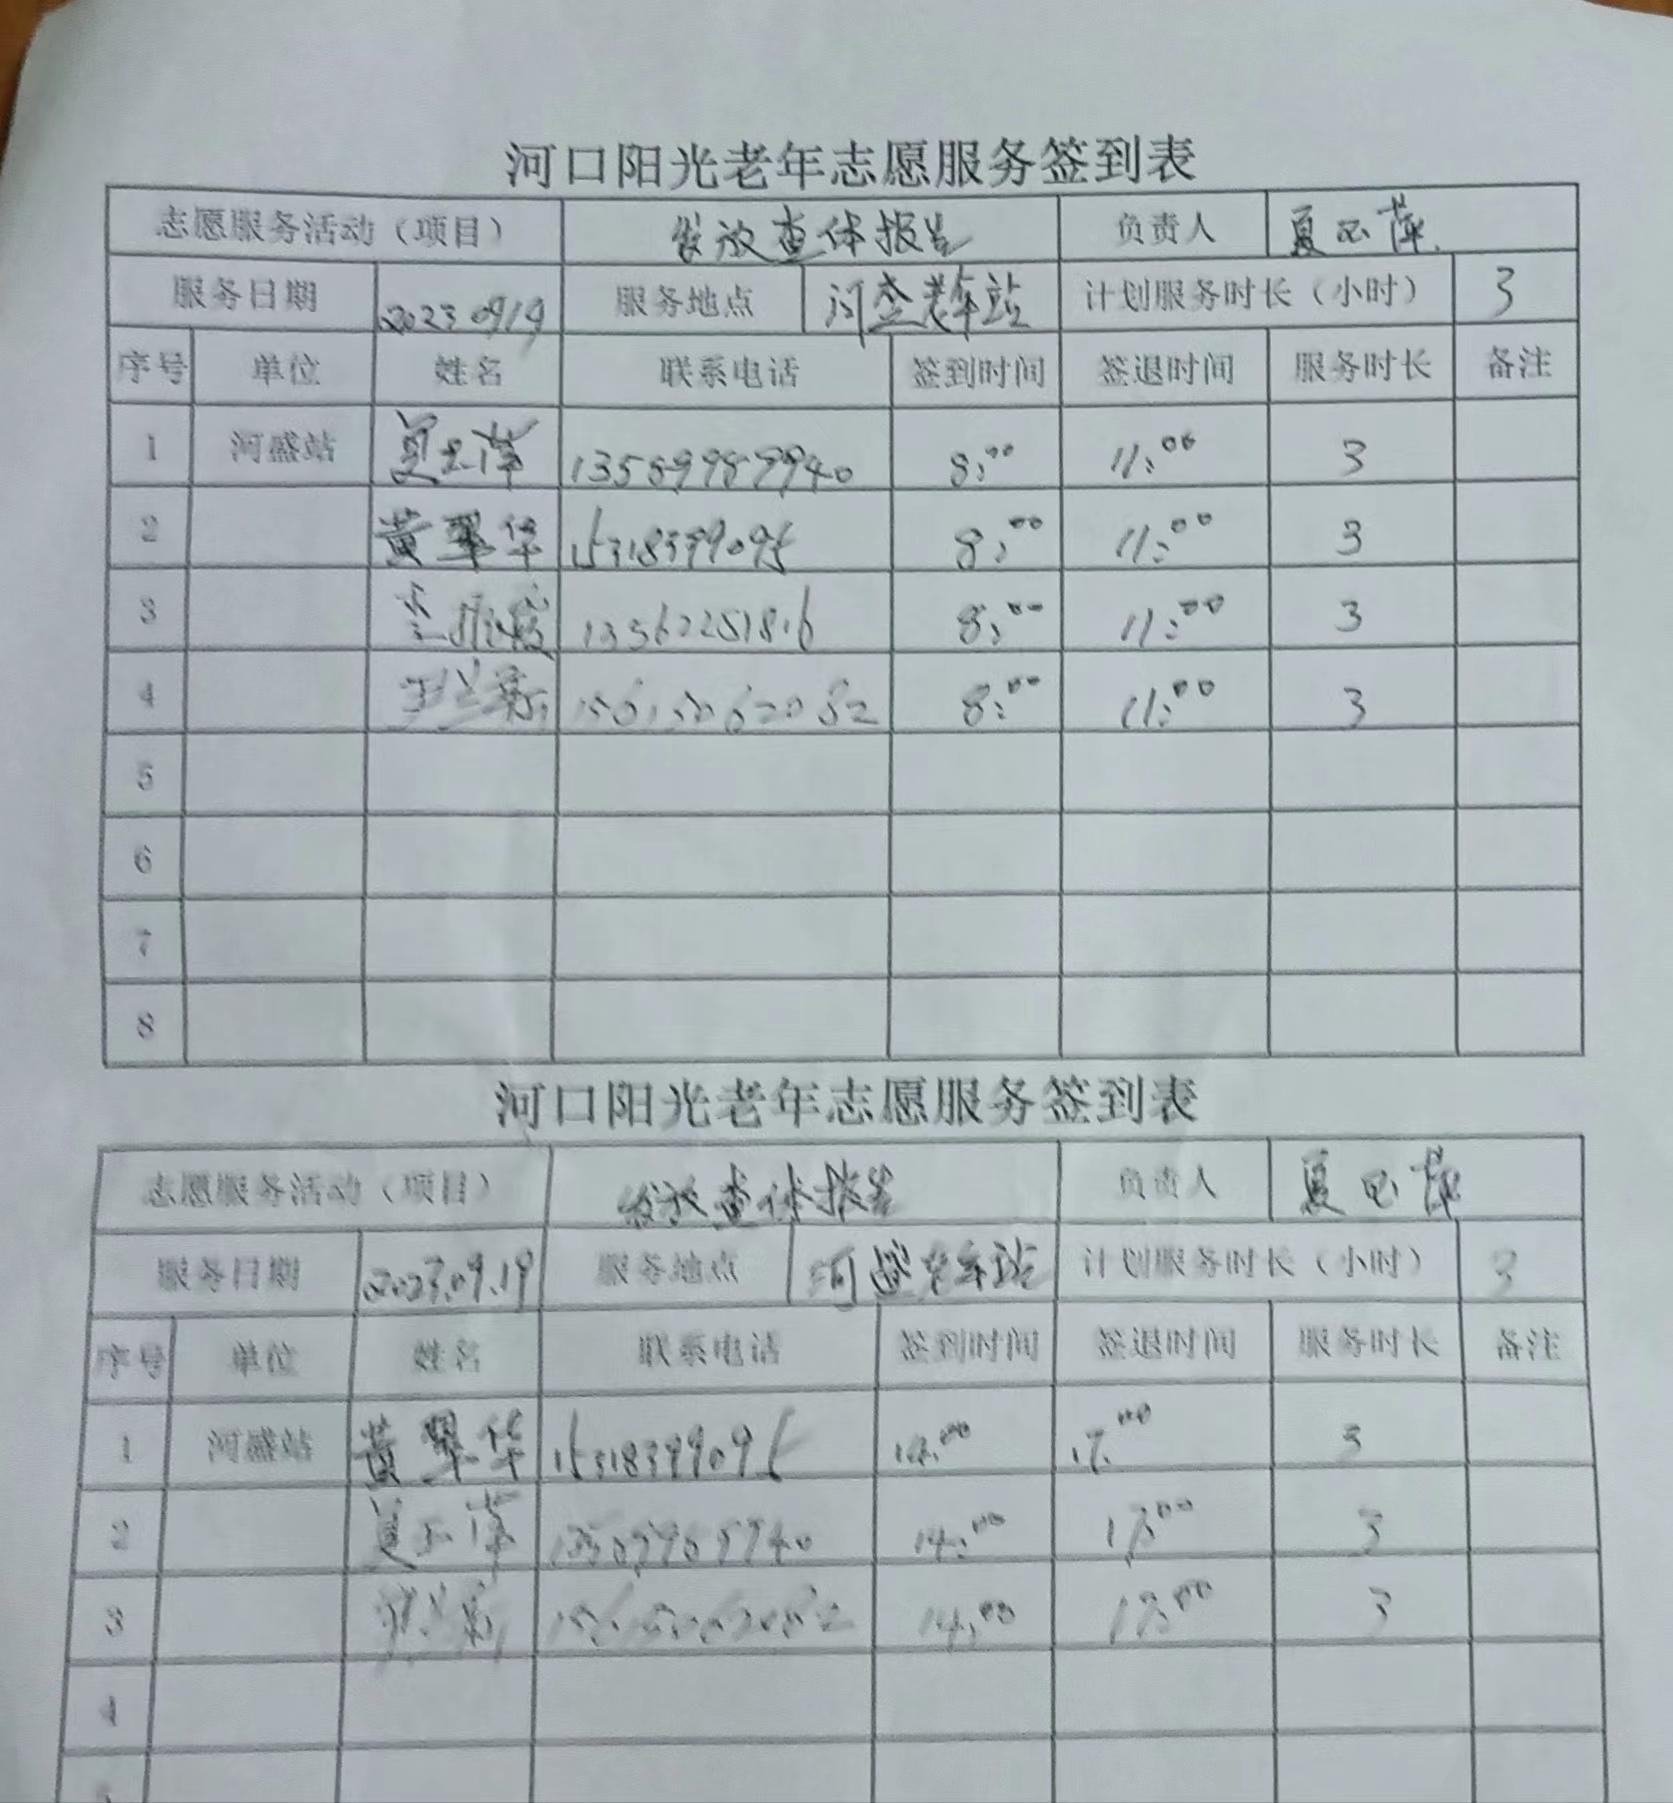 河口阳光老年志愿服务签到表
志愿服务活动（项目） 发放查体报告 负责人 夏玉萍
服务日期 2023.09.19 服务地点 河盛老年站 计划服务时长（小时） 3
序号 单位 姓名 联系电话 签到时间 签退时间 服务时长 备注
1 河盛站 夏玉萍 8:00 11:00 3
2 黄翠华 15318399095 8:00 11:00 3
3 8:00 11:00 3
4 8:00 11:00 3
5
6
7
8
河口阳光老年志愿服务签到表
志愿服务活动（项目） 发放查体报告 负责人 夏玉萍
服务日期 2023.09.19 服务地点 河盛老年站 计划服务时长（小时） 3
序号 单位 姓名 联系电话 签到时间 签退时间 服务时长 备注
1 河盛站 黄翠华 15318399095 14:00 17:00 3
2 夏玉萍 14:00 17:00 3
3 14:00 17:00 3
4